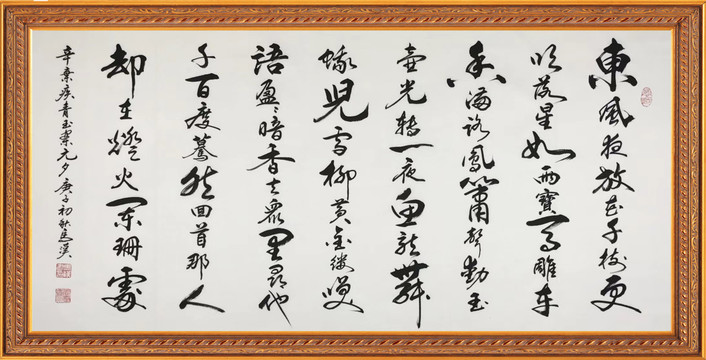 東風夜放花千樹更
吹落星如雨寶馬雕車
香滿路鳳簫聲動玉
壺光轉一夜魚龍舞
蛾兒雪柳黃金縷笑
語盈〻暗香去衆里尋他
千百度驀然回首那人
却在燈火闌珊處
辛棄疾青玉案元夕庚子初秋